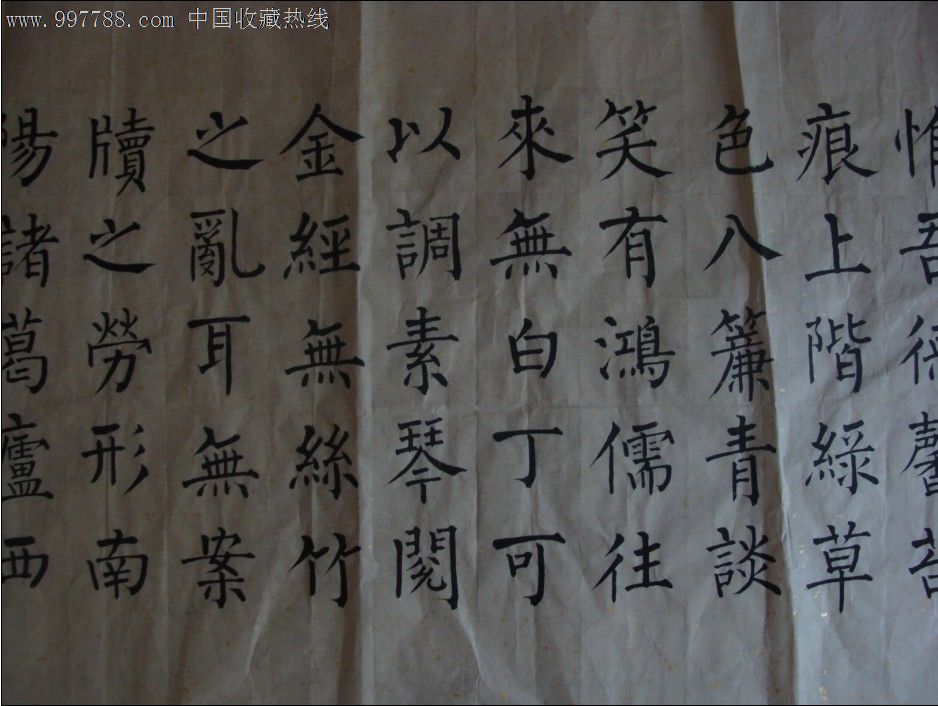 www.997788.com 中国收藏热线
惟吾德馨苔
痕上階綠草
色八簾青談
笑有鴻儒往
來無白丁可
以調素琴閱
金經無絲竹
之亂耳無案
牘之勞形南
陽諸葛廬西